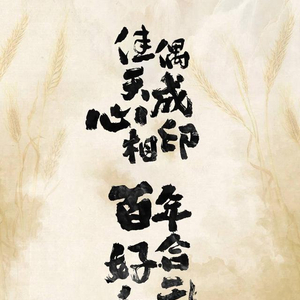 佳偶
天成
心心相印
百年
好合